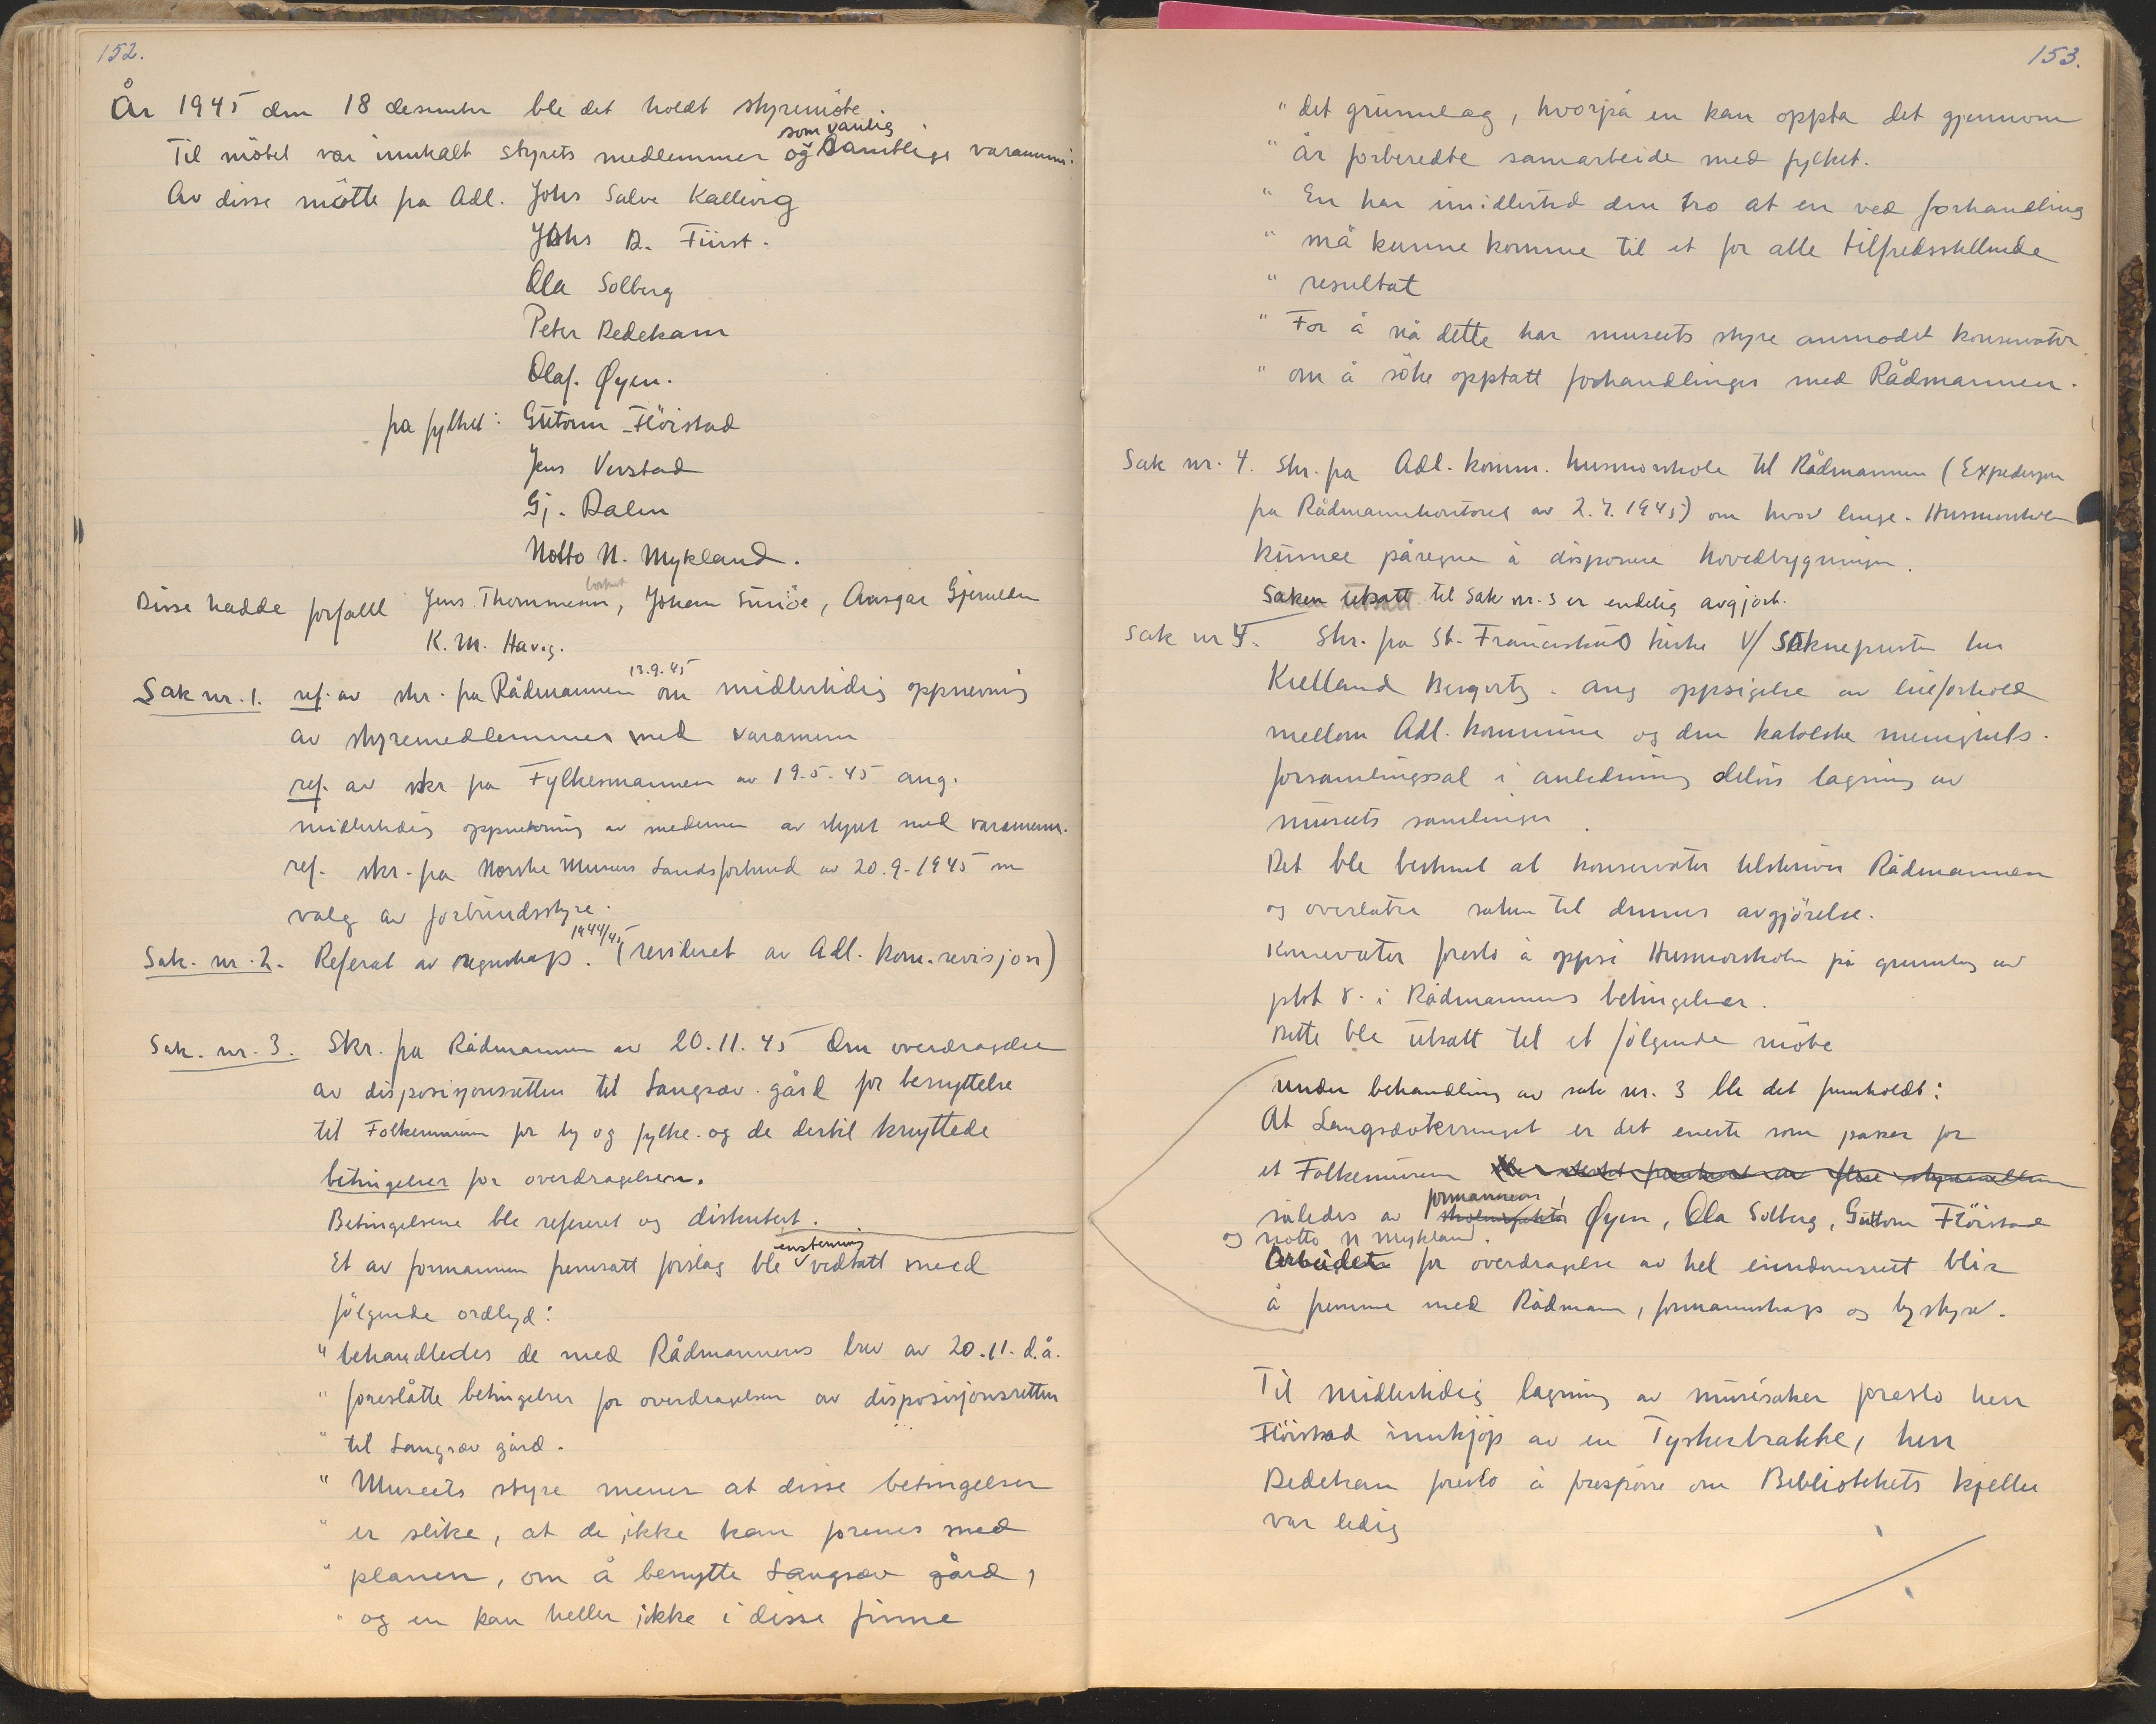 152.
År 1945 den 18 desember ble det holdt styremöte.
Til mötet var innkalt styrets medlemmer og som vanlig samtlige varamenn.
Av disse mötte fra Adl. Johs Salve Kallevig
Johs A. Fürst.
Ola Solberg
Peter Dedekam
Olaf. Øyen.
fra fylket: Guttorm Flöistad
Jens Verstad
Gj. Dalen
Notto N. Mykland.
Disse hadde forfall Jens Thommesen, bortreist Johan Sunöe, Ansgar Gjerulden
K. M. Haveg.
Sak nr. 1. ref. av skr. fra Rådmannen 13.9.45 om midlertidig oppnevning
av styremedlemmer med varamenn
ref. av skr fra Fylkesmannen av 19.5.45 ang.
midlertidig oppnevning av medlemmer av styret med varamenn.
ref. skr. fra Norske Museers Landsforbund av 20.9.1945 om
valg av forbundsstyre.
Sak. nr. 2. Referat av regnskap. 1944/45 (revideret av Adl. kom. revisjon)
Sak. nr. 3. Skr. fra Rådmannen av 20.11.45 Om overdragelsen
av disposisjonsretten til Langsæv gård for benyttelse
til Folkemuseum for by og fylke. og de dertil knyttede
betingelser for overdragelsen.
Betingelsene ble referert og diskutert.
Et av formannen fremsatt forslag ble enstemmig vedtatt med
fölgende ordlyd:
" behandledes de med Rådmannens brev av 20.11. d.å.
" foreslåtte betingelser for overdragelsen av disposisjonsretten
" til Langsæv gård.
" Museets styre mener at disse betingelser
" er slike, at de ikke kan forenes med
" planen, om å benytte Langsæv gård,
" og en kan heller ikke i disse finne
153.
" det grunnlag, hvorpå en kan oppta det gjennom
" år forberedte samarbeide med fylket.
" En har imidlertid den tro at en ved forhandling
" må kunne komme til et for alle tilfredsstillende
" resultat
" For å nå dette har museets styre anmodet konservator
" om å söke opptatt forhandlinger med Rådmannen.
Sak nr. 4. Skr. fra Adl. komm. husmorskole til Rådmannen (Expedisjon
fra Rådmannkontoret av 2.7.1945) om hvor lenge. Husmorskolen
kunne påregne å disponere hovedbygningen.
Saken utsatt til Sak nr. 3 er endelig avgjort.
Sak nr 5. Skr. fra St. Franciskus kirke v/ Soknepresten herr
Kielland Bergwitz. ang oppsigelse av leieforhold
mellom Adl. kommune og den katolske menighets.
forsamlingssal i anledning delvis lagring av
museets samlinger.
Det ble bestemt at konservator tilskriver Rådmannen
og overlater saken til dennes avgjörelse.
Konservator foreslo å oppsi Husmorskolen på grunnlag av
pkt 8. i Rådmannens betingelser.
Dette ble utsatt til et fölgende möte
Under behandling av sak nr. 3 ble det fremholdt:
At Langsævterrenget er det eneste som passer for
et Folkemuseum ble sterkt fremhevet av flere styremedlem
således av formannen, Øyen, Ola Solberg, Guttorm Flöistad
og Notto N Mykland.
Arbeidet for overdragelse av hel eiendomsrett blir
å fremme med Rådmann, formannskap og bystyre.
Til midlertidig lagring av musésaker foreslo herr
Flöistad innkjöp av en Tyskerbrakke, herr
Dedekam foreslo å forespörre om Bibliotekets kjeller
var ledig